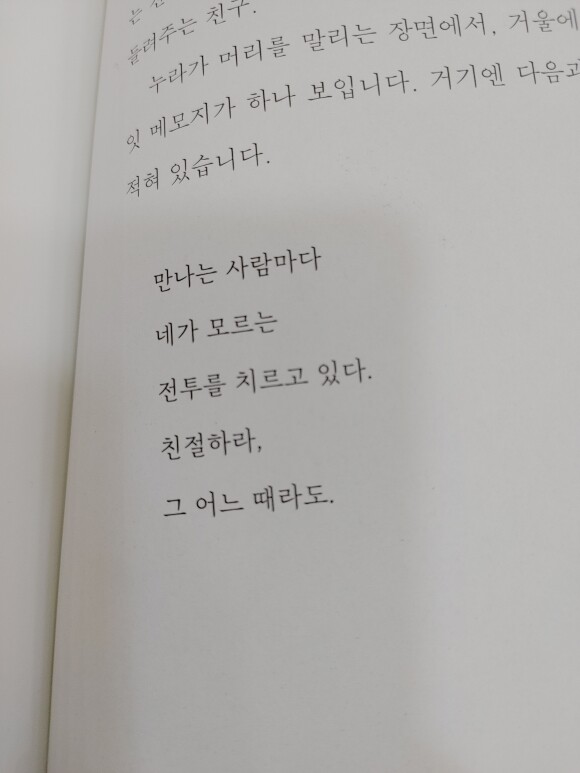 들려주는 친구.
누라가 머리를 말리는 장면에서, 거울에
잇 메모지가 하나 보입니다. 거기엔 다음과
적혀 있습니다.
만나는 사람마다
네가 모르는
전투를 치르고 있다.
친절하라,
그 어느 때라도.